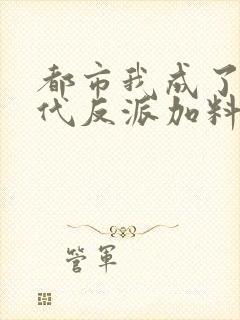 都市我成了
代反派加料
管军